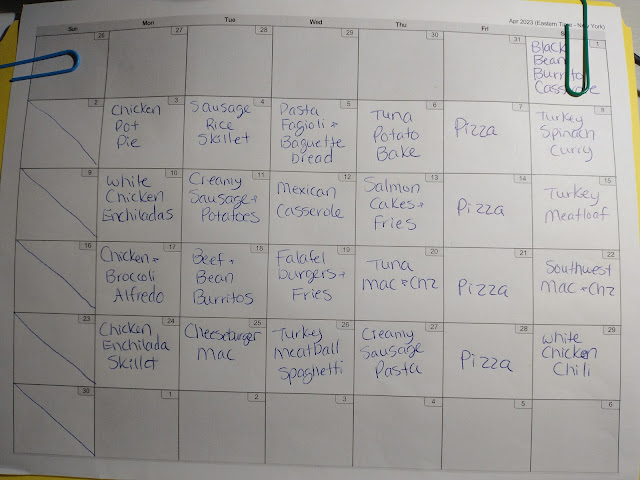 Apr 2023 (Eastern Time - New York)
Sun Mon Tue Wed Thu Fri
26 27 28 29 30 31 1
Black
Bean
Burrito
Casserole
2 3 4 5 6 7 8
Chicken
Pot
Pie
Sausage
Rice
Skillet
Pasta
Fagioli +
Baguette
Bread
Tuna
Potato
Bake
Pizza
Turkey
Spinach
Curry
9 10 11 12 13 14 15
White
Chicken
Enchiladas
Creamy
Sausage +
Potatoes
Mexican
Casserole
Salmon
Cakes +
Fries
Pizza
Turkey
Meatloaf
16 17 18 19 20 21 22
Chicken +
Broccoli
Alfredo
Beef +
Bean
Burritos
Falafel
burgers +
Fries
Tuna
Mac + Chz
Pizza
Southwest
Mac + Chz
23 24 25 26 27 28 29
Chicken
Enchilada
Skillet
Cheeseburger
Mac
Turkey
Meatball
Spaghetti
Creamy
Sausage
Pasta
Pizza
White
Chicken
Chili
30 1 2 3 4 5 6